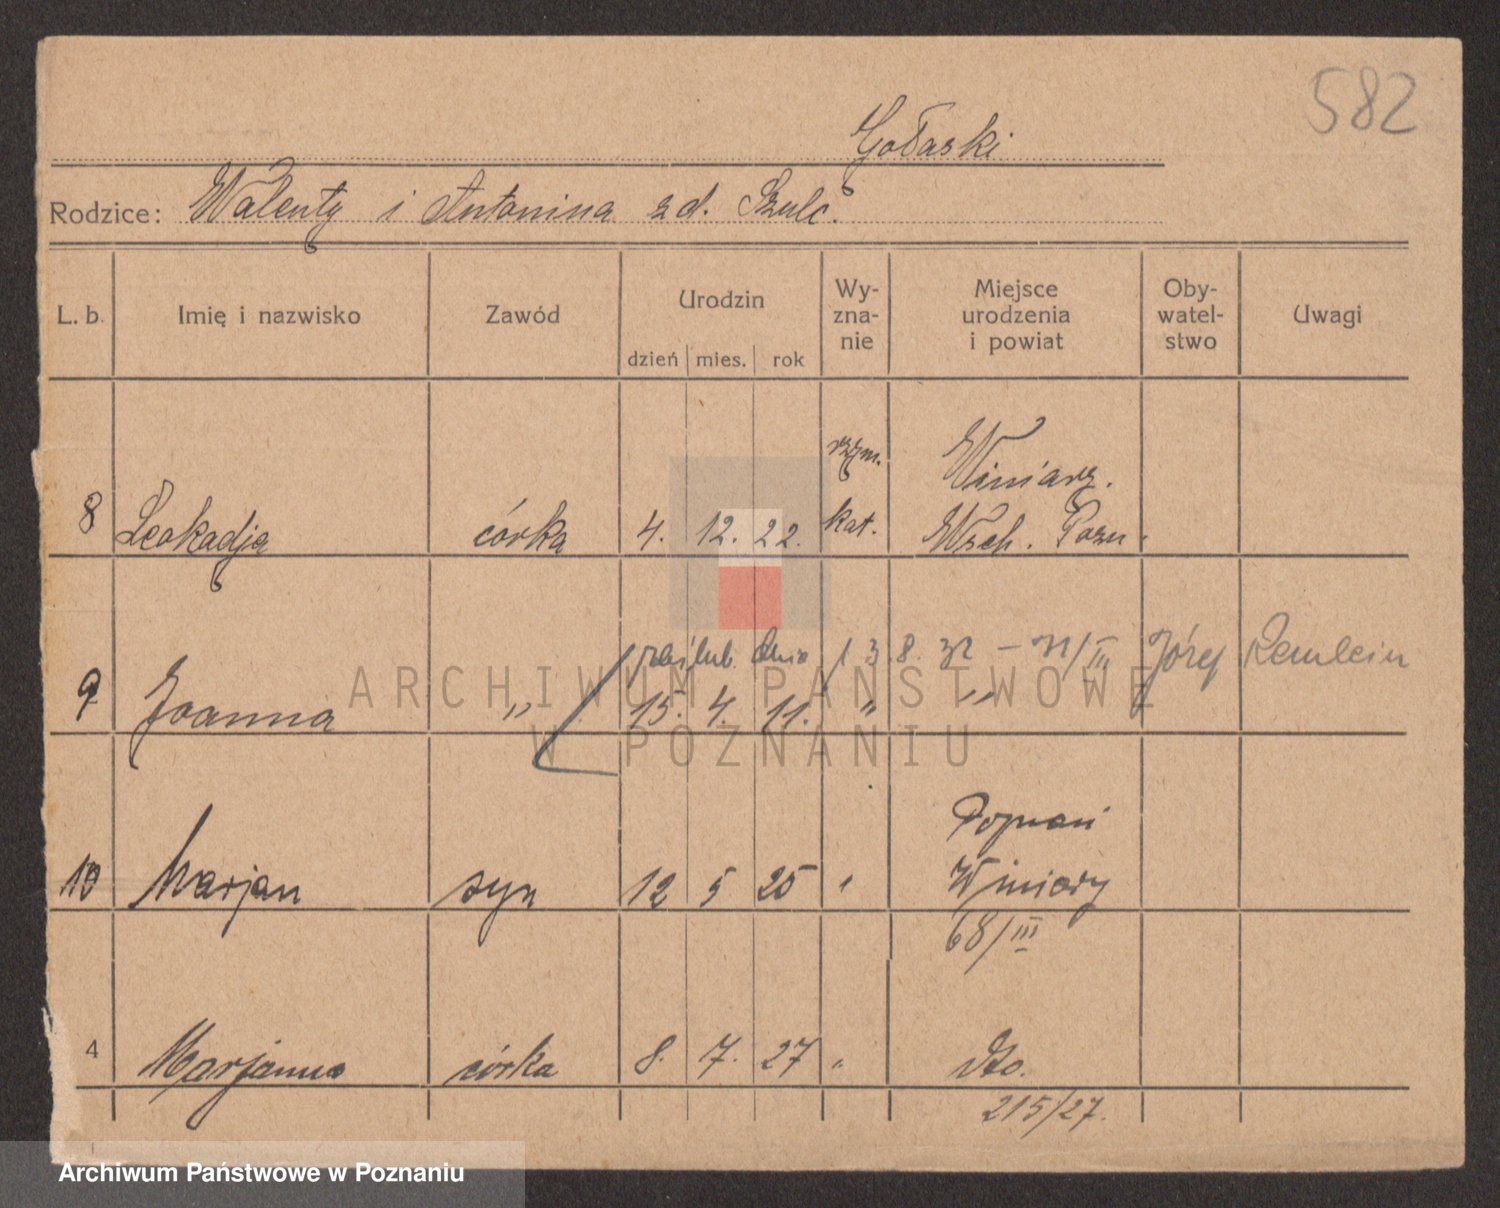 582
Gołaski
Rodzice: Walenty i Antonina zd. Szulc.
L. b. Imię i nazwisko Zawód Urodzin dzień mies. rok Wy-zna-nie Miejsce urodzenia i powiat Oby-watel-stwo Uwagi
rzym. Winiarz.
8 Leokadja córka 4. 12. 22. kat. Wsch. Pozn.
dnia 13.8.32 – 31/III Józef Remlein
9 Joanna " 15. 4. 11. " "
ARCHIWUM PAŃSTWOWE
W POZNANIU
Poznań
10 Marjan syn 12 5 25 " Winiary
68/III
4 Marjanna córka 8. 7. 27 " dto.
215/27.
Archiwum Państwowe w Poznaniu